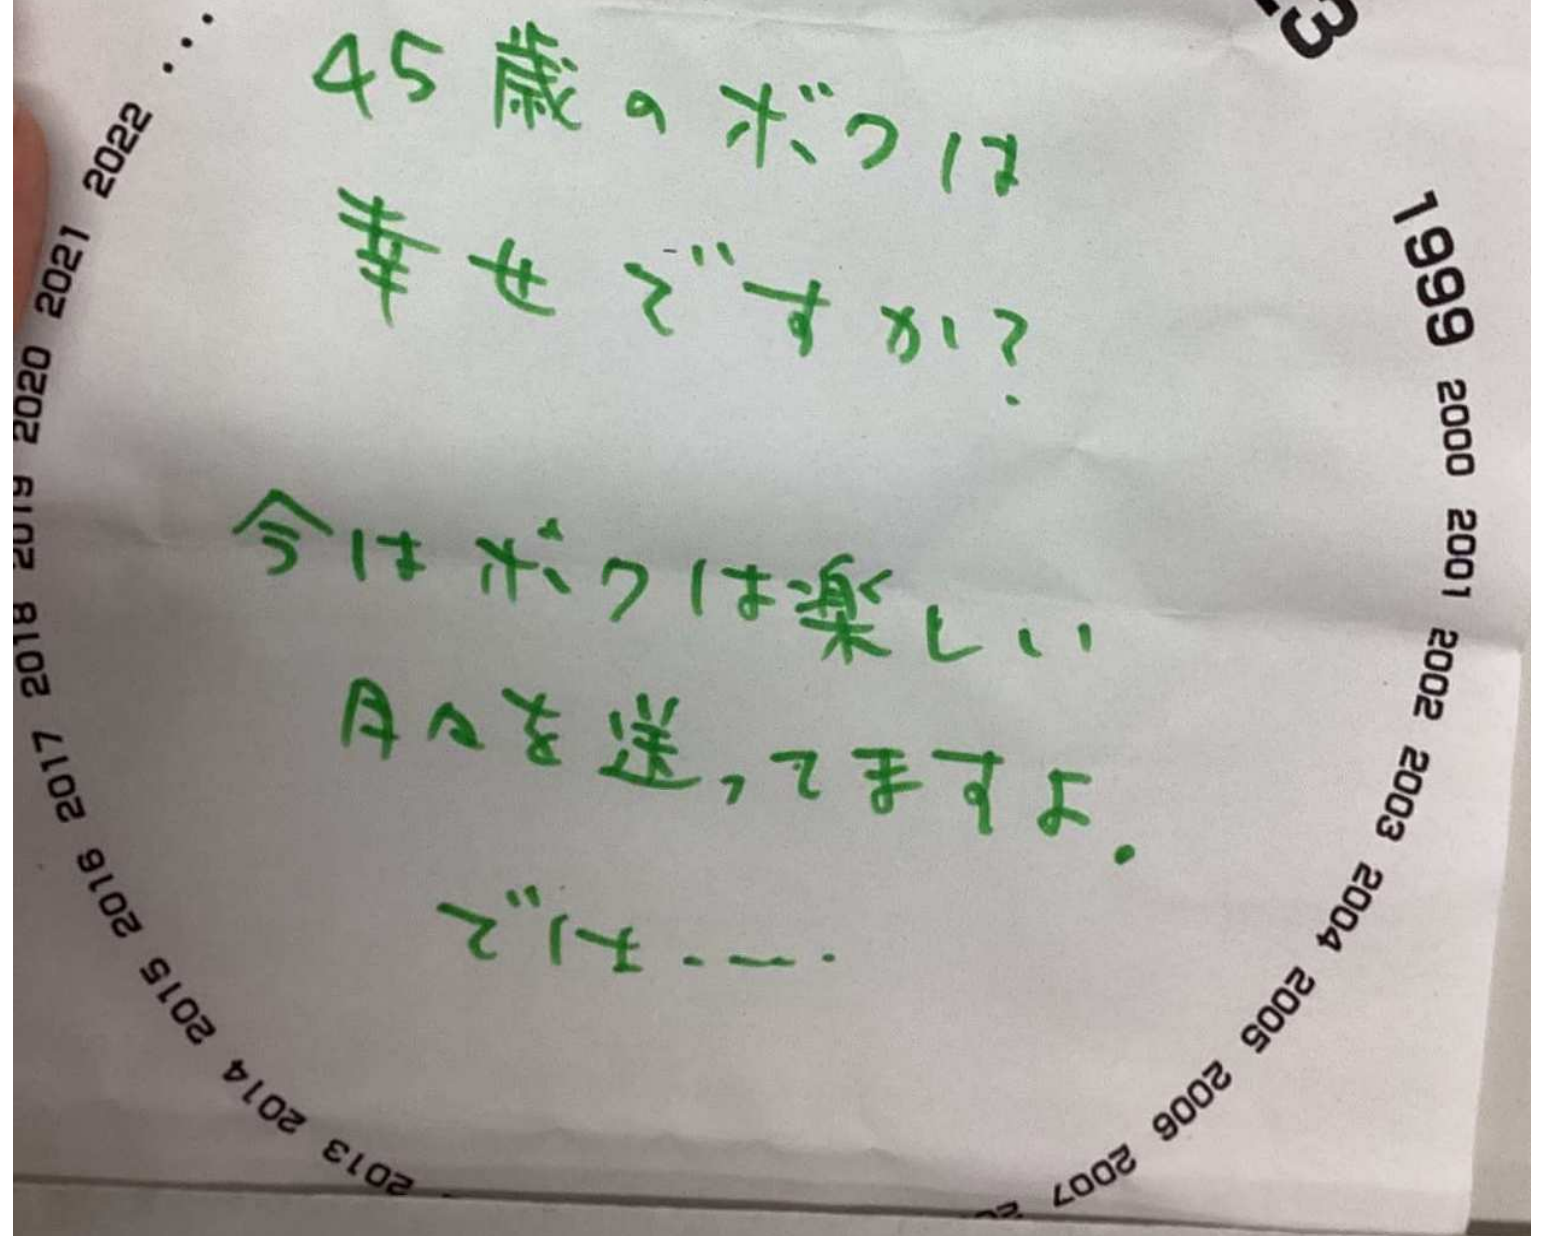 45歳のボクは
幸せですか?
今はボクは楽しい
日々を送ってますよ.
では.—.
3
1999 2000 2001 2002 2003 2004 2005 2006 2007
2013 2014 2015 2016 2017 2018 2019 2020 2021 2022 ...